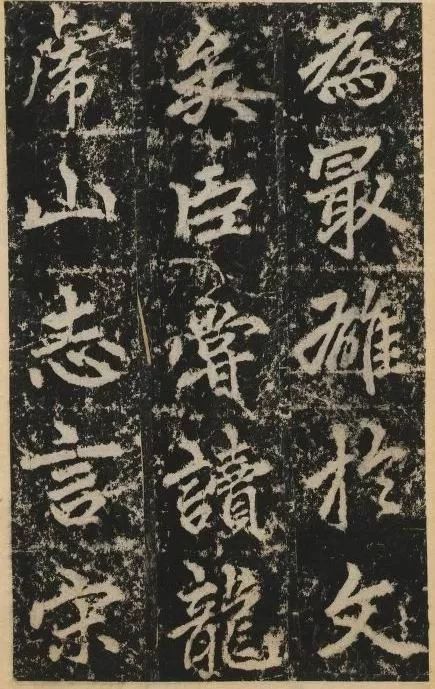 為最雄於文
矣臣嘗讀龍
虎山志言宋